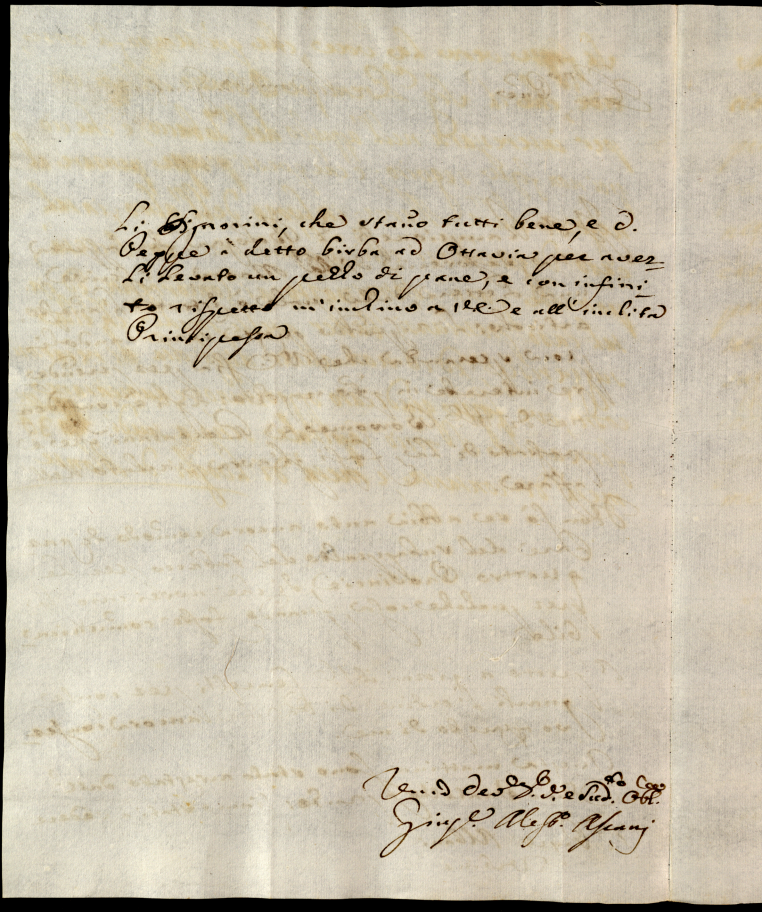 Li Signorini, che stano tutti bene, e D.
Peppe à detto birba ad Ottavia per aver-
li levato un pezzo di pane, e con infini-
to rispetto m'inclino a VE e all'inclita
Principessa
Um.o Dev.o S. V. e Sud. Obl.
Giuse. Aless.o Ascani